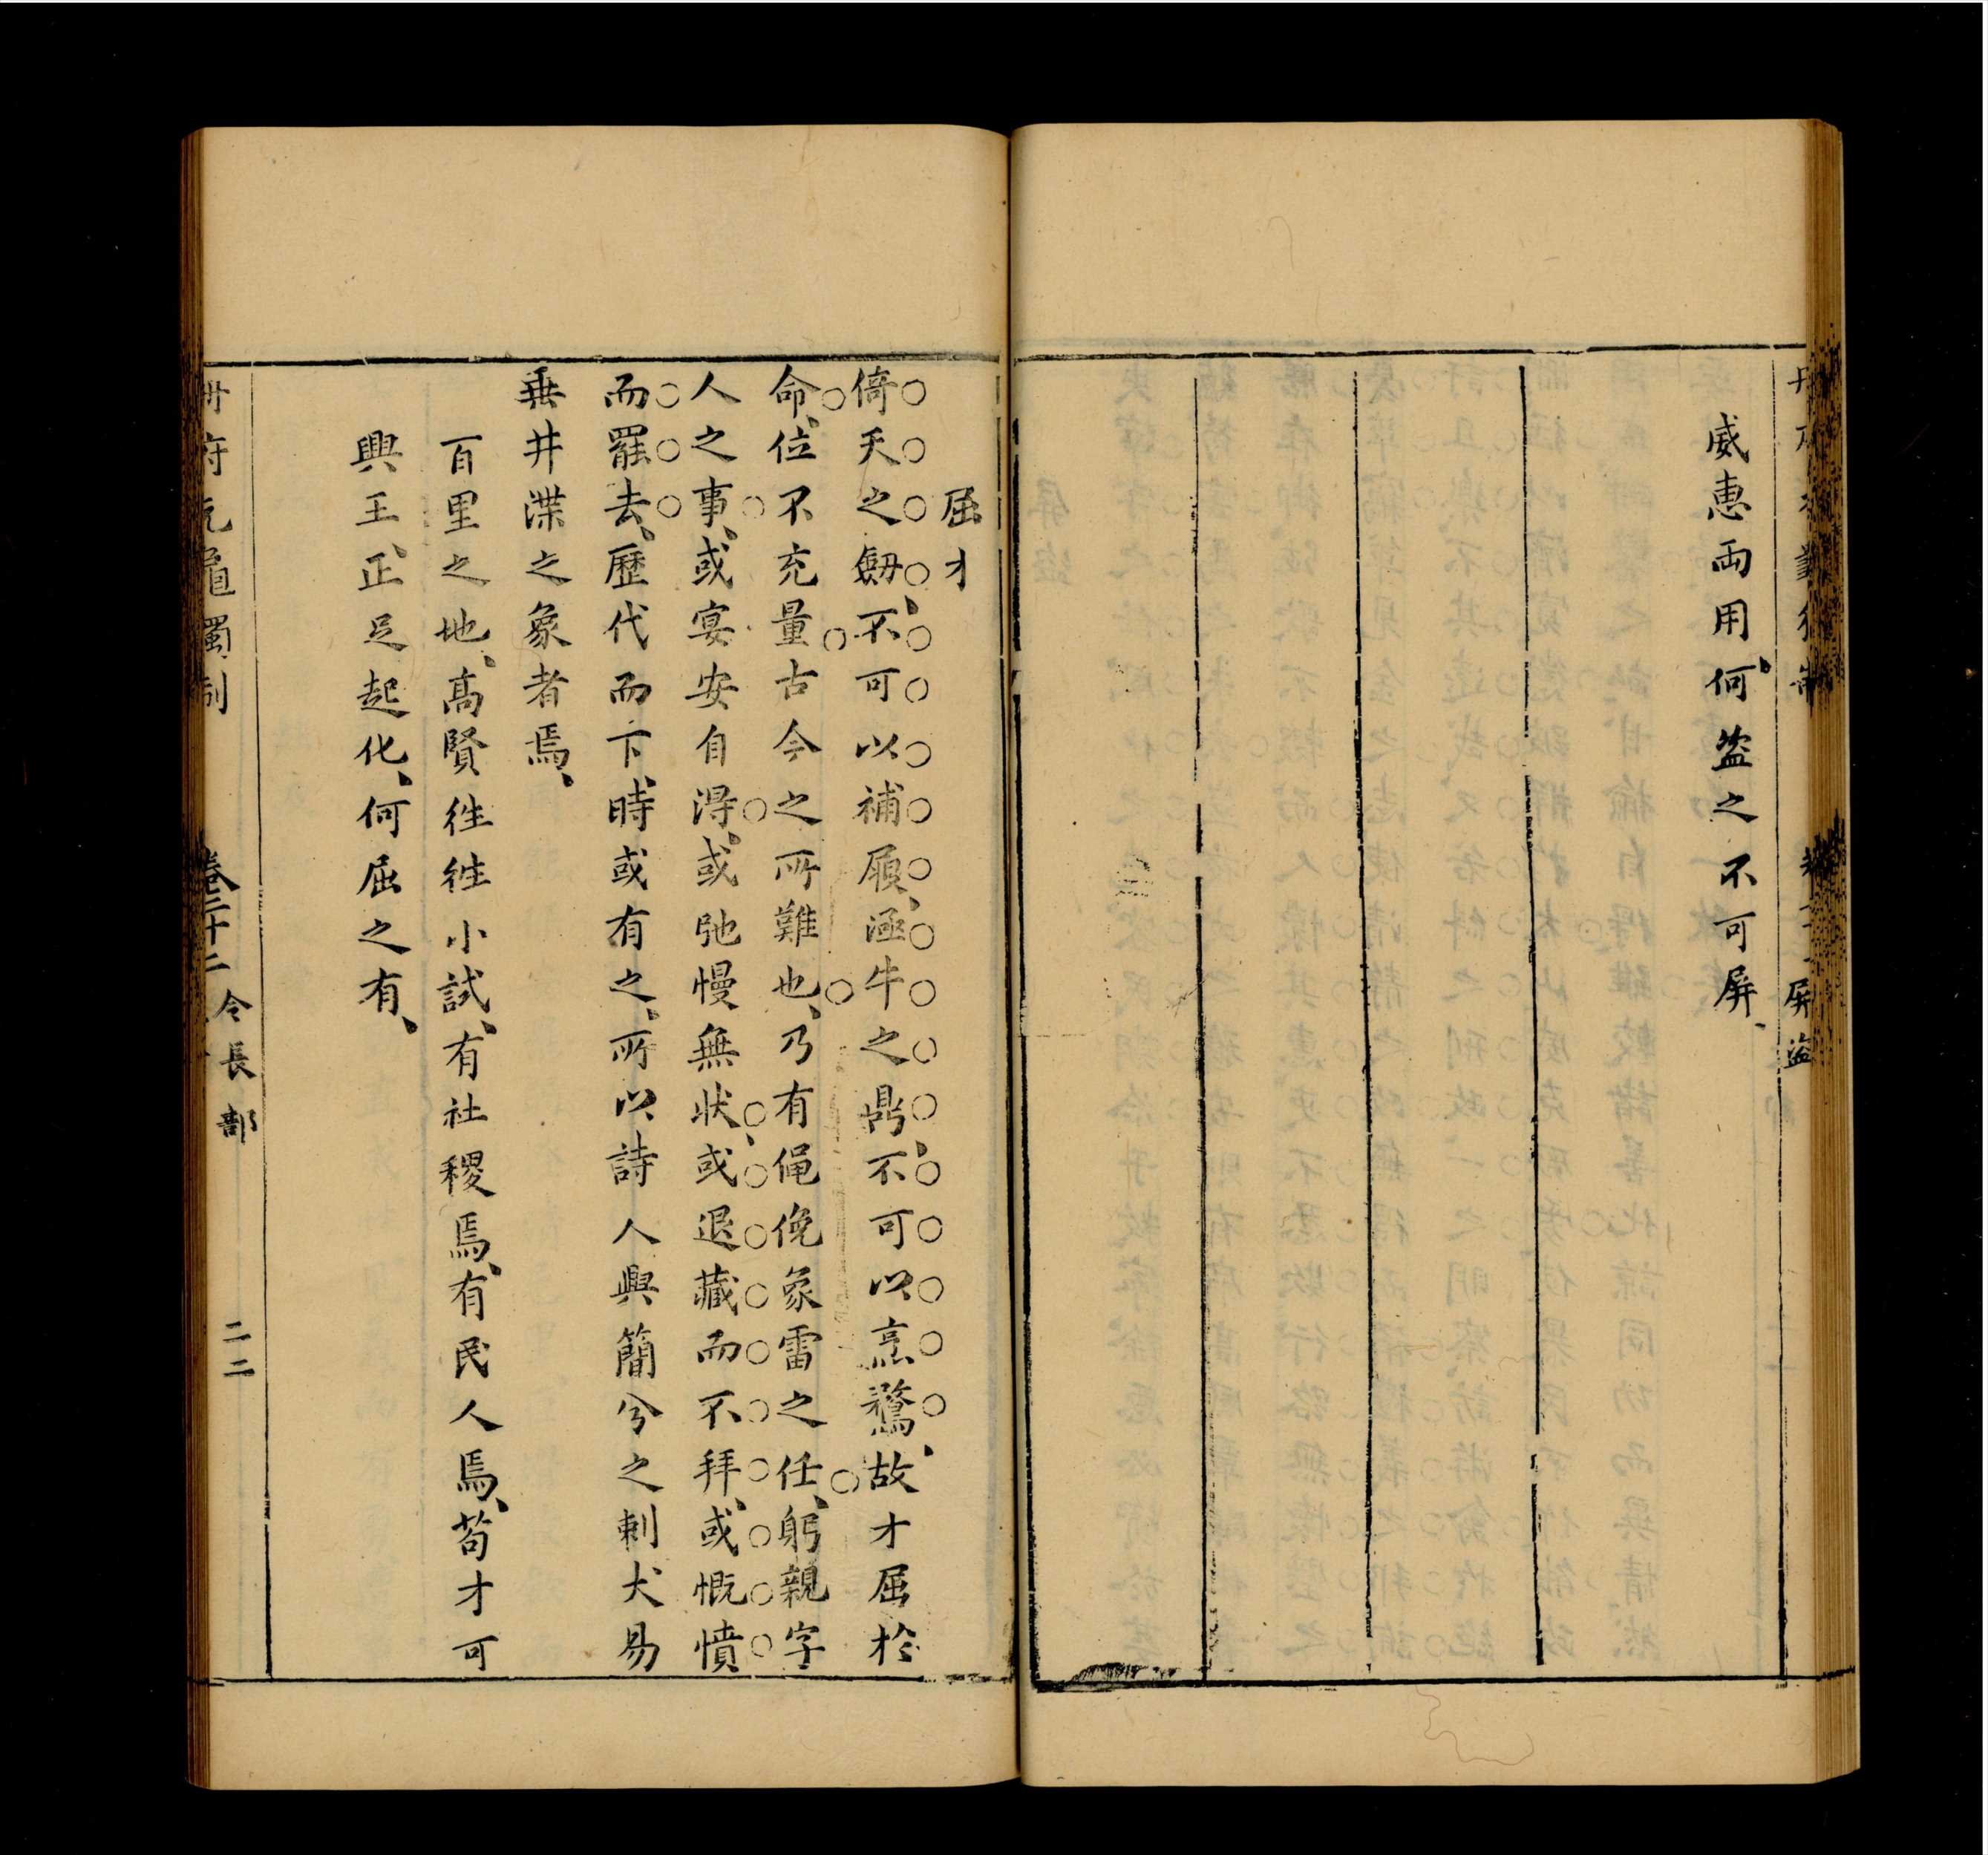 屏盜
威惠兩用、何盜之不可屏、
屈才
倚天之劔、不可以補履、涵牛之鼎、不可以烹鶩、故才屈於
命、位不充量、古今之所難也、乃有僶俛象雷之任、躬親字
人之事、或宴安自得、或弛慢無狀、或退藏而不拜、或慨憤
而罷去、歷代而下、時或有之、所以詩人興簡兮之刺、大易
垂井渫之象者焉、
百里之地、高賢徃徃小試、有社稷焉、有民人焉、苟才可
興王、正足起化、何屈之有、
冊府元龜獨制
卷三十二
令長部
二二